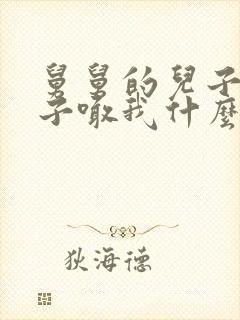 舅舅的兒子
子噉我什麼
狄海德